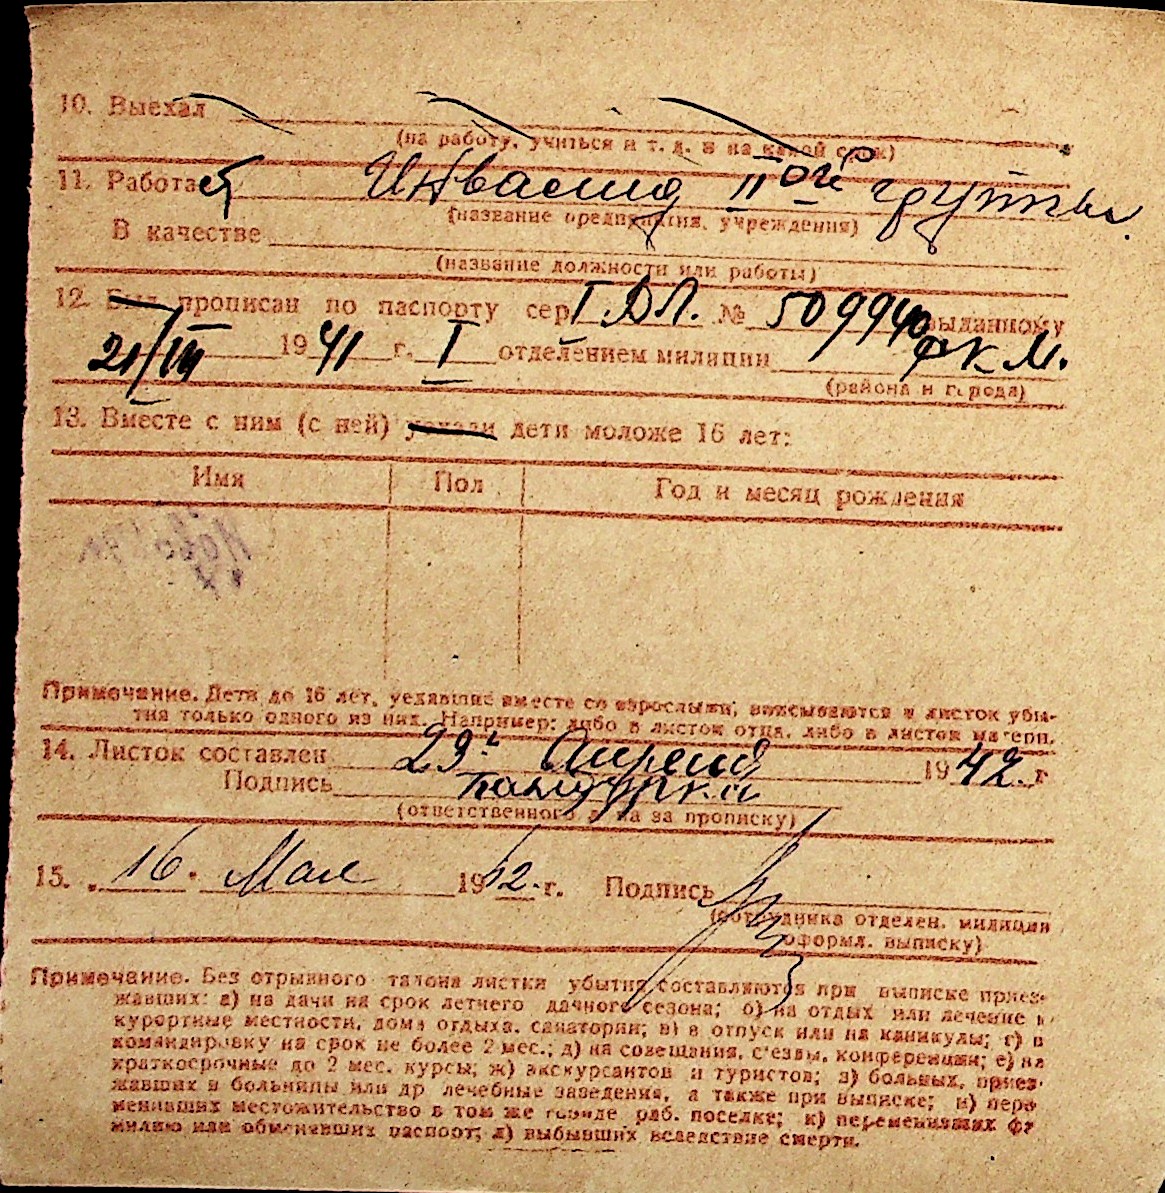 10. Выехал
(на работу, учиться и т. д. и на какой срок)
11. Работает Инвалид II ой группы.
(название предприятия, учреждения)
В качестве
(название должности или работы)
12. Был прописан по паспорту сер I.ДЛ. № 509940 выданному
21/III 1941 г. I отделением милиции РКМ.
(района и города)
13. Вместе с ним (с ней) уехали дети моложе 16 лет:
Имя Пол Год и месяц рождения
Примечание. Дети до 16 лет, уехавшие вместе со взрослыми, вписываются в листок убы-
тия только одного из них. Например: либо в листок отца, либо в листок матери.
14. Листок составлен 29 Апреля 1942 г
Подпись
(ответственного лица за прописку)
15. 16 Мая 1942 г. Подпись
(сотрудника отделен. милиции
оформл. выписку)
Примечание. Без отрывного талона листки убытия составляются при выписке приез-
жавших: а) на дачи на срок летнего дачного сезона; б) на отдых или лечение в
курортные местности, дома отдыха, санатории; в) в отпуск или на каникулы; г) в
командировку на срок не более 2 мес.; д) на совещания, с'езды, конференции; е) на
краткосрочные до 2 мес. курсы; ж) экскурсантов и туристов; з) больных, приез-
жавших в больницы или др лечебные заведения, а также при выписке; и) пере
менивших местожительство в том же городе раб. поселке; к) переменивших фа
милию или обменявших паспорт; л) выбывших вследствие смерти.